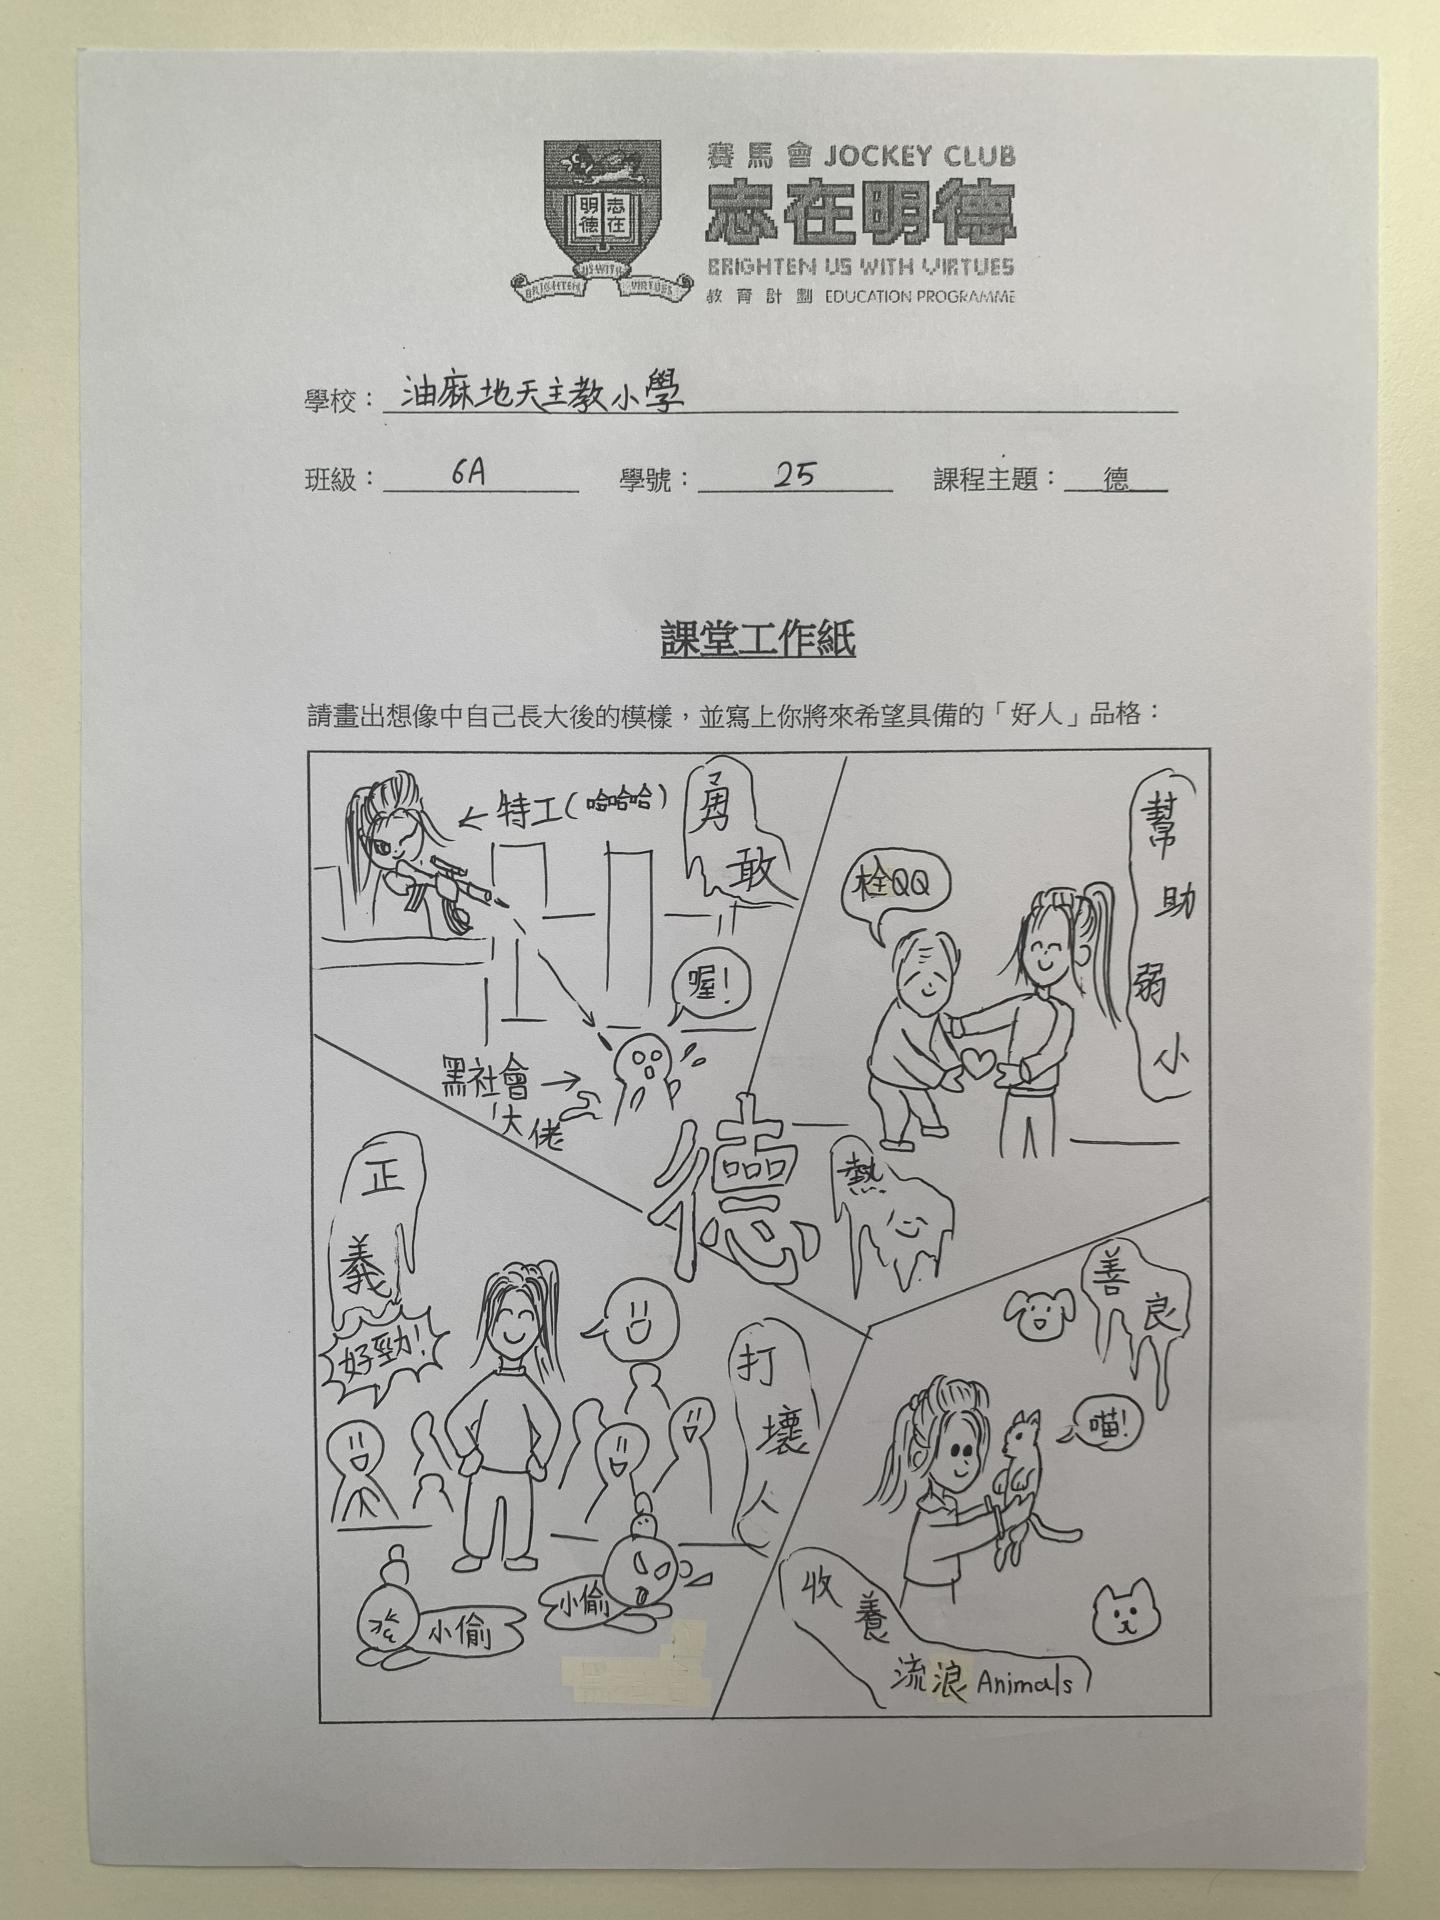 賽馬會 JOCKEY CLUB
志在明德
BRIGHTEN US WITH VIRTUES
教育計劃 EDUCATION PROGRAMME
明德 志在
BRIGHTEN US WITH VIRTUES
學校：油麻地天主教小學
班級：6A 學號：25 課程主題：德
課堂工作紙
請畫出想像中自己長大後的模樣，並寫上你將來希望具備的「好人」品格：
← 特工（哈哈哈）
勇敢
喔！
黑社會 →
大佬
幫助弱小
栓QQ
德
熱心
正義
好勁！
打壞人
小偷
小偷
善良
喵！
收養
流浪 Animals